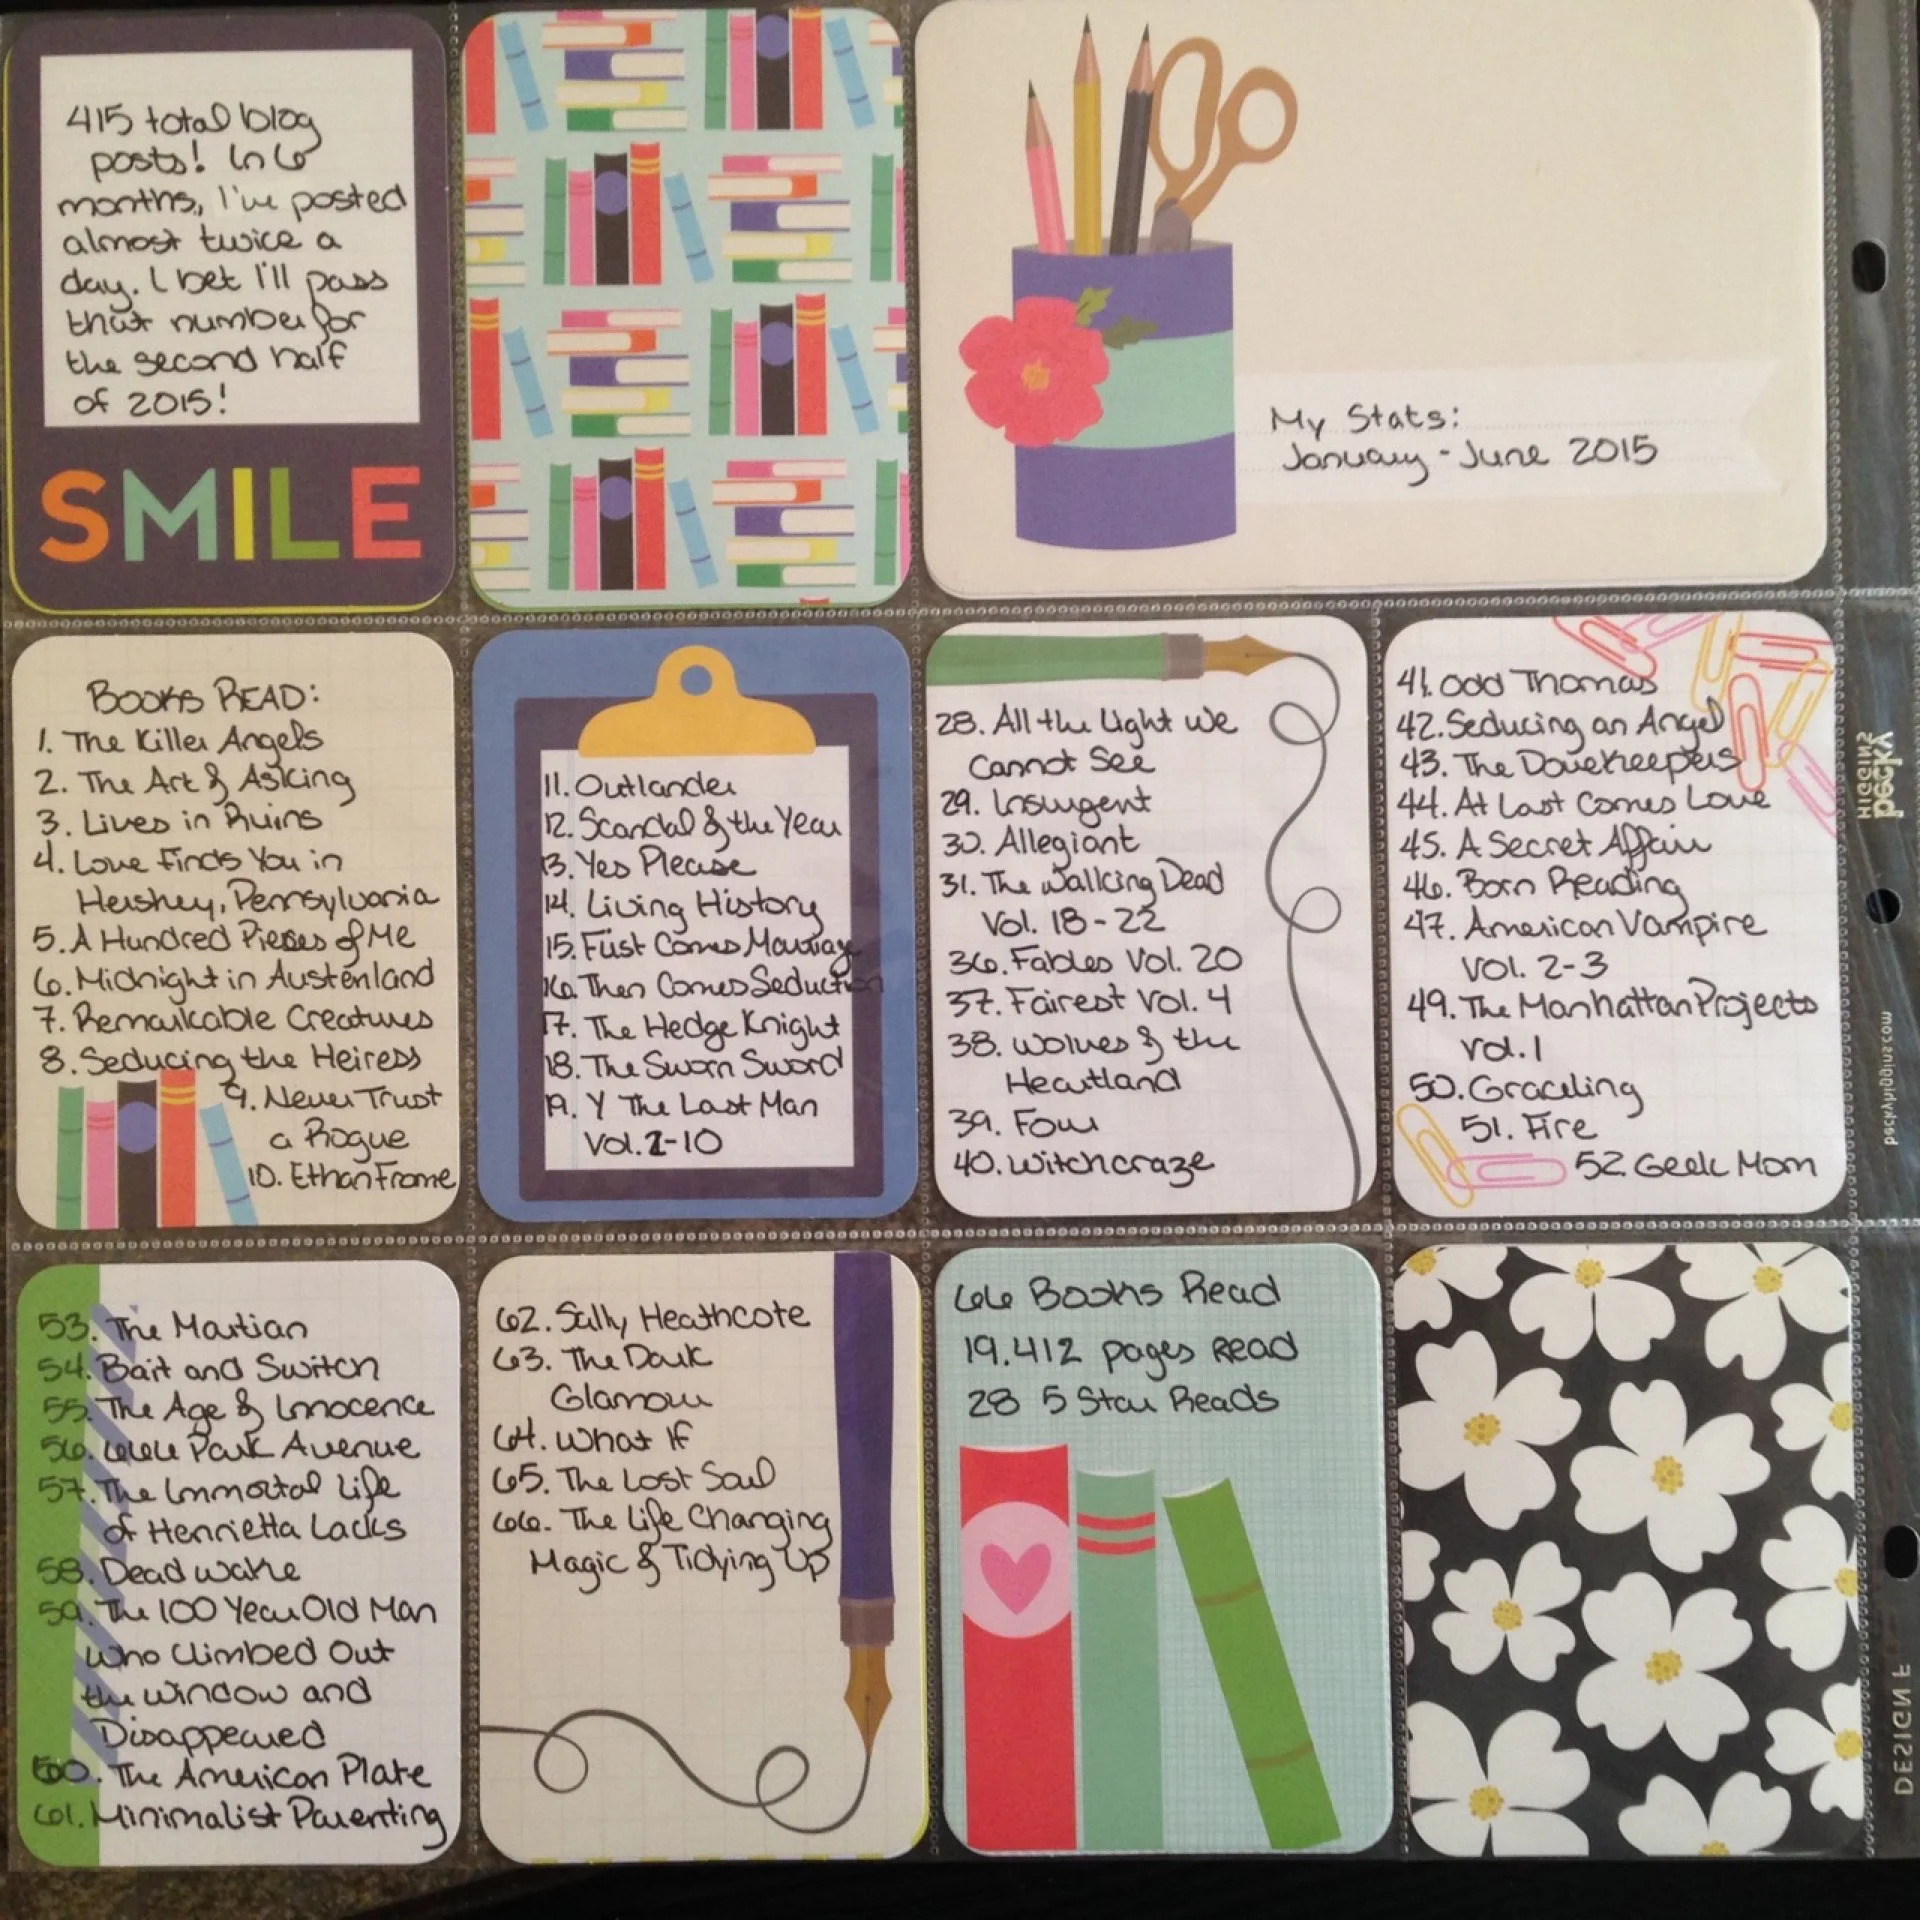 415 total blog
posts! In 6
months, I've posted
almost twice a
day. I bet I'll pass
that number for
the second half
of 2015!
SMILE
My Stats:
January - June 2015
BOOKS READ:
1. The Killer Angels
2. The Art of Asking
3. Lives in Ruins
4. Love Finds You in
Hershey, Pennsylvania
5. A Hundred Pieces of Me
6. Midnight in Austenland
7. Remarkable Creatures
8. Seducing the Heiress
9. Never Trust
a Rogue
10. Ethan Frome
11. Outlander
12. Scandal of the Year
13. Yes Please
14. Living History
15. First Comes Marriage
16. Then Comes Seduction
17. The Hedge Knight
18. The Sworn Sword
19. Y The Last Man
Vol. 2-10
28. All the Light We
Cannot See
29. Insurgent
30. Allegiant
31. The Walking Dead
Vol. 18-22
36. Fables Vol. 20
37. Fairest Vol. 4
38. Wolves of the
Heartland
39. Four
40. Witchcraze
41. Odd Thomas
42. Seducing an Angel
43. The Dovekeepers
44. At Last Comes Love
45. A Secret Affair
46. Born Reading
47. American Vampire
Vol. 2-3
49. The Manhattan Projects
Vol. 1
50. Graceling
51. Fire
52. Geek Mom
53. The Martian
54. Bait and Switch
55. The Age of Innocence
56. 666 Park Avenue
57. The Immortal Life
of Henrietta Lacks
58. Dead Wake
59. The 100 Year Old Man
Who Climbed Out
the Window and
Disappeared
60. The American Plate
61. Minimalist Parenting
62. Sally Heathcote
63. The Dark
Glamour
64. What If
65. The Lost Soul
66. The Life Changing
Magic of Tidying Up
66 Books Read
19,412 pages read
28 5 Star Reads
HIGGINS
becky
beckyhiggins.com
DESIGN F